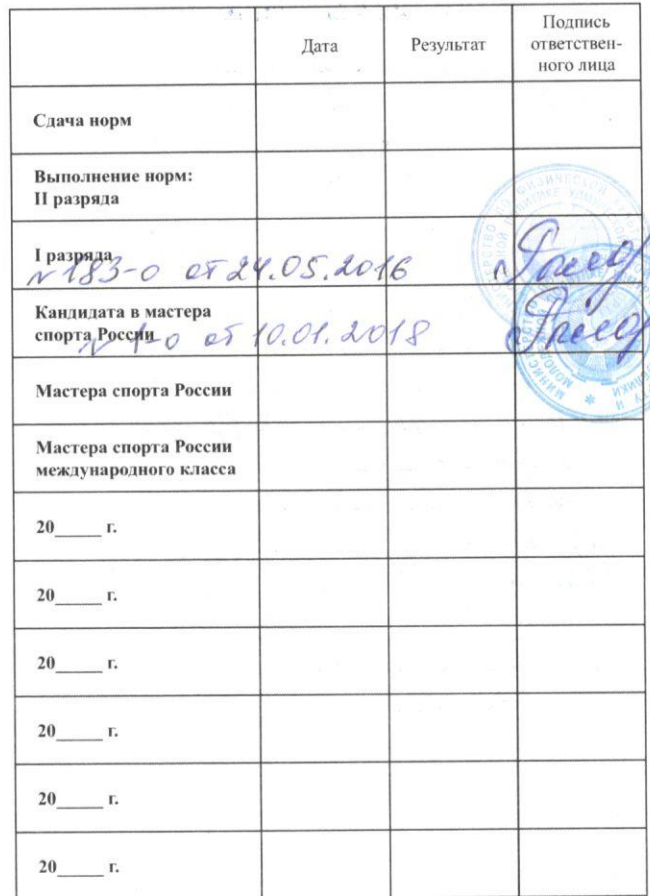 Дата Результат Подпись
ответствен-
ного лица
Сдача норм
Выполнение норм:
II разряда
I разряда
№183-о от 24.05.2016
Кандидата в мастера
спорта России
№ 1-о от 10.01.2018
Мастера спорта России
Мастера спорта России
международного класса
20_____ г.
20_____ г.
20_____ г.
20_____ г.
20_____ г.
20_____ г.